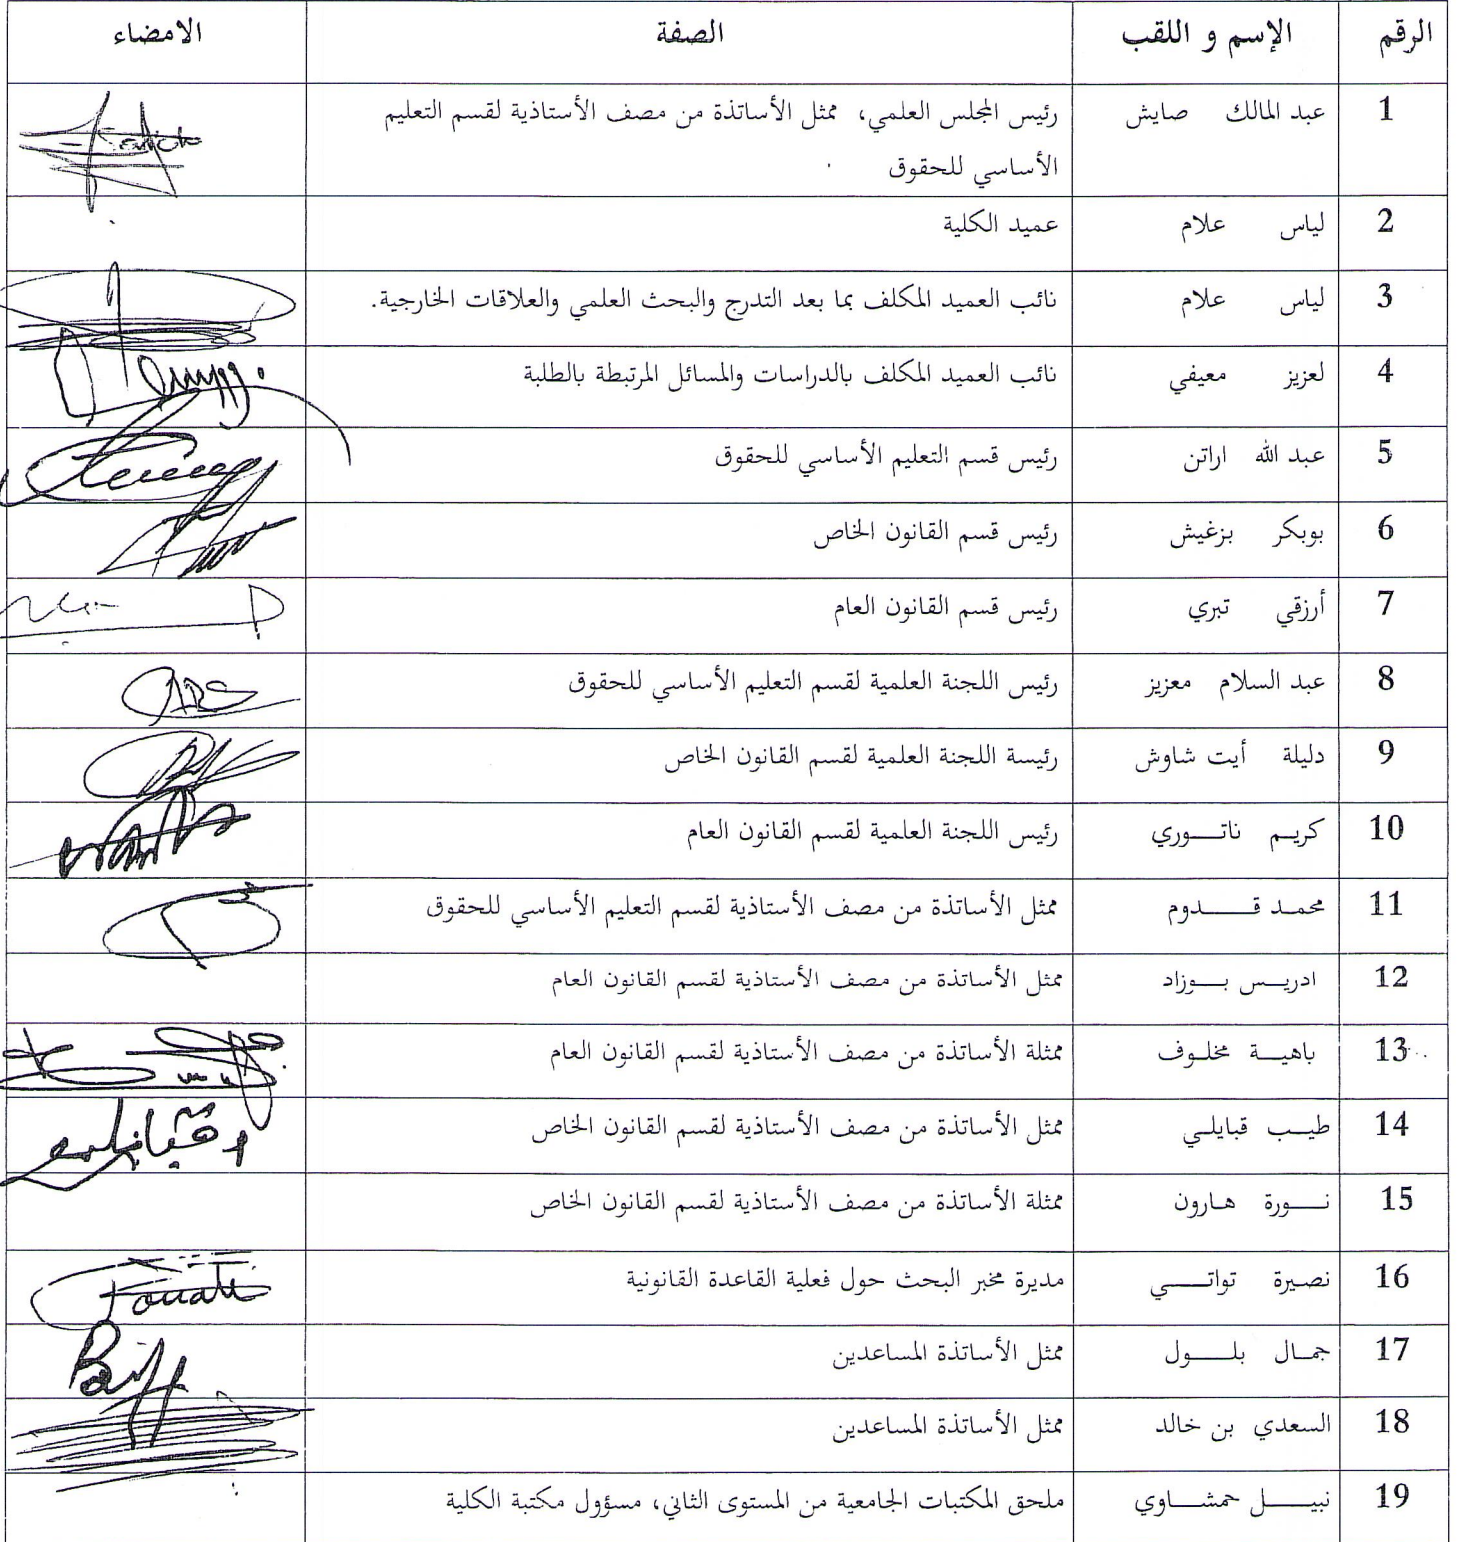 الرقم الإسم و اللقب الصفة الامضاء
1 عبد المالك صايش رئيس المجلس العلمي، ممثل الأساتذة من مصف الأستاذية لقسم التعليم
الأساسي للحقوق
2 لياس علام عميد الكلية
3 لياس علام نائب العميد المكلف بما بعد التدرج والبحث العلمي والعلاقات الخارجية.
4 لعزيز معيفي نائب العميد المكلف بالدراسات والمسائل المرتبطة بالطلبة
5 عبد الله اراتن رئيس قسم التعليم الأساسي للحقوق
6 بوبكر بزغيش رئيس قسم القانون الخاص
7 أرزقي تبري رئيس قسم القانون العام
8 عبد السلام معزيز رئيس اللجنة العلمية لقسم التعليم الأساسي للحقوق
9 دليلة أيت شاوش رئيسة اللجنة العلمية لقسم القانون الخاص
10 كريم ناتوري رئيس اللجنة العلمية لقسم القانون العام
11 محمد قدوم ممثل الأساتذة من مصف الأستاذية لقسم التعليم الأساسي للحقوق
12 ادريس بوزاد ممثل الأساتذة من مصف الأستاذية لقسم القانون العام
13 باهية مخلوف ممثلة الأساتذة من مصف الأستاذية لقسم القانون العام
14 طيب قبايلي ممثل الأساتذة من مصف الأستاذية لقسم القانون الخاص
15 نورة هارون ممثلة الأساتذة من مصف الأستاذية لقسم القانون الخاص
16 نصيرة تواتي مديرة مخبر البحث حول فعلية القاعدة القانونية
17 جمال بلول ممثل الأساتذة المساعدين
18 السعدي بن خالد ممثل الأساتذة المساعدين
19 نبيل حمشاوي ملحق المكتبات الجامعية من المستوى الثاني، مسؤول مكتبة الكلية